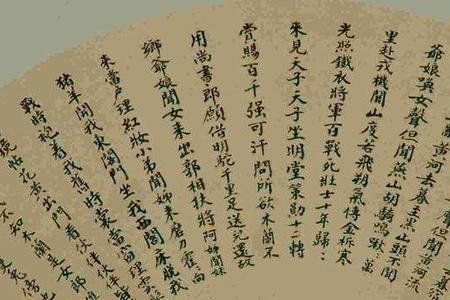 聲但聞黃河流
黃河去暮至燕山頭不聞
爺娘喚女聲但聞燕山胡騎鳴啾萬
里赴戎機關山度若飛朔氣傳金柝寒
光照鐵衣將軍百戰死壯士十年歸〻
來見天子天子坐明堂策勳十二轉
賞賜百千强可汗問所欲木蘭不
用尚書郎願借明駝千里足送兒還故
鄉爺娘聞女來出郭相扶將阿姊聞妹
來當戶理紅妝小弟聞姊來磨刀霍
豬羊開我東閣門坐我西閣床脫我
戰時袍著我舊時裳當窗理雲
帖花黃出門看伙伴伙
不知木蘭是女郎